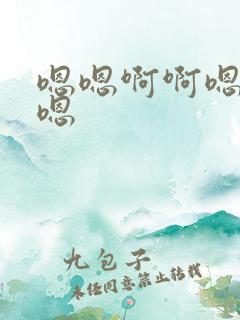 嗯嗯啊啊嗯
嗯
九包子
未经同意禁止转载